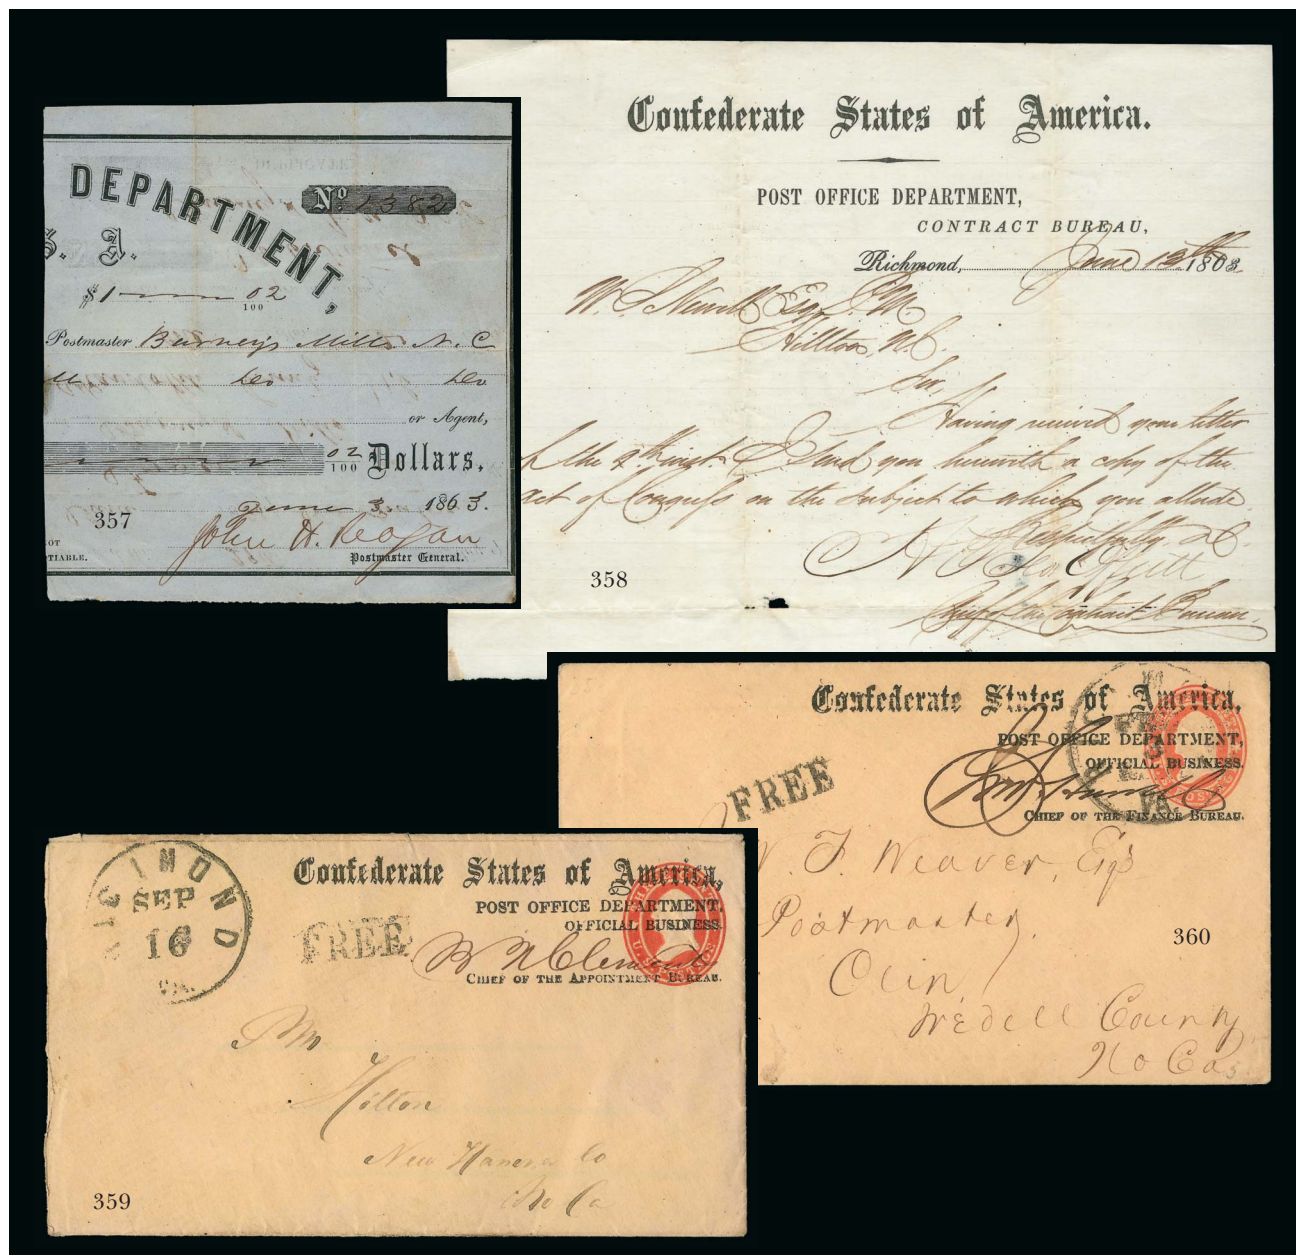 DEPARTMENT,
No. 2382
S. A.
$1 02
100
Postmaster Burney's Mills N. C
or Agent,
02
100 Dollars,
June 3 1863.
John H. Reagan
Postmaster General.
OT
TIABLE.
357
Confederate States of America.
POST OFFICE DEPARTMENT,
CONTRACT BUREAU,
Richmond, June 12th 1863
W. S. Newell Esq P.M.
N.C.
Sir,
Having received your letter
of the 9th inst. I send you herewith a copy of the
act of Congress on the subject to which you allude.
Respectfully, &c.
Chief of the Contract Bureau.
358
Confederate States of America,
POST OFFICE DEPARTMENT,
OFFICIAL BUSINESS.
CHIEF OF THE FINANCE BUREAU.
FREE
VA.
W. F. Weaver, Esqr
Postmaster,
Olin,
Iredell County
No Ca
360
RICHMOND
SEP
16
VA.
FREE
Confederate States of America,
POST OFFICE DEPARTMENT,
OFFICIAL BUSINESS.
B N Clements
CHIEF OF THE APPOINTMENT BUREAU.
U.S.
PM
Hilton
New Hanover Co
No Ca
359